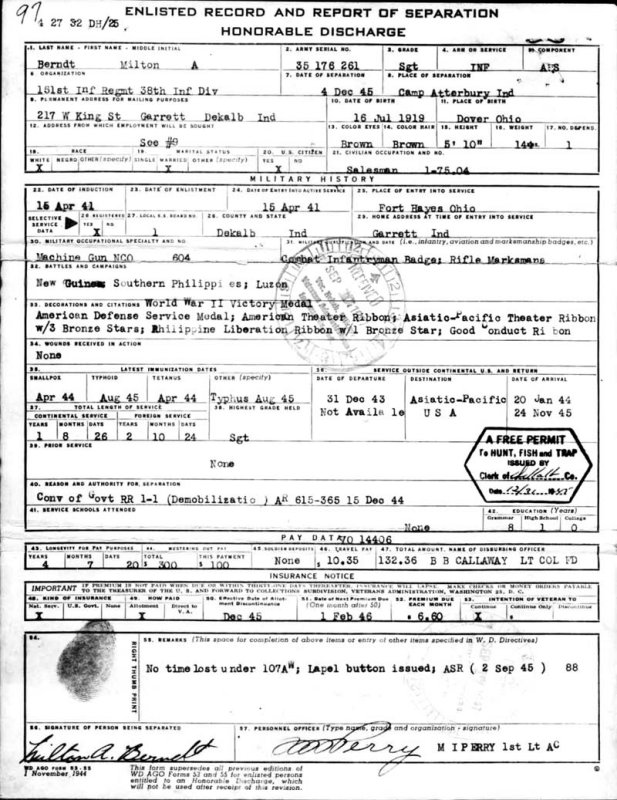 97
4 27 32 DH/25
ENLISTED RECORD AND REPORT OF SEPARATION
HONORABLE DISCHARGE
1. LAST NAME - FIRST NAME - MIDDLE INITIAL 2. ARMY SERIAL NO. 3. GRADE 4. ARM OR SERVICE 5. COMPONENT
Berndt Milton A 35 176 261 Sgt INF AUS
6. ORGANIZATION 7. DATE OF SEPARATION 8. PLACE OF SEPARATION
151st Inf Regmt 38th Inf Div 4 Dec 45 Camp Atterbury Ind
9. PERMANENT ADDRESS FOR MAILING PURPOSES 10. DATE OF BIRTH 11. PLACE OF BIRTH
217 W King St Garrett Dekalb Ind 16 Jul 1919 Dover Ohio
12. ADDRESS FROM WHICH EMPLOYMENT WILL BE SOUGHT 13. COLOR EYES 14. COLOR HAIR 15. HEIGHT 16. WEIGHT 17. NO. DEPEND.
See #9 Brown Brown 5' 10" 1
18. RACE 19. MARITAL STATUS 20. U.S. CITIZEN 21. CIVILIAN OCCUPATION AND NO.
WHITE NEGRO OTHER (specify) SINGLE MARRIED OTHER (specify) YES NO
X X X Salesman 1-75.04
MILITARY HISTORY
22. DATE OF INDUCTION 23. DATE OF ENLISTMENT 24. DATE OF ENTRY INTO ACTIVE SERVICE 25. PLACE OF ENTRY INTO SERVICE
15 Apr 41 15 Apr 41 Fort Hayes Ohio
SELECTIVE SERVICE DATA 26. REGISTERED YES NO 27. LOCAL S.S. BOARD NO. 28. COUNTY AND STATE 29. HOME ADDRESS AT TIME OF ENTRY INTO SERVICE
X 1 Dekalb Ind Garrett Ind
30. MILITARY OCCUPATIONAL SPECIALTY AND NO. 31. MILITARY QUALIFICATION AND DATE (i.e., infantry, aviation and marksmanship badges, etc.)
Machine Gun NCO 604 Combat Infantryman Badge; Rifle Marksmans
32. BATTLES AND CAMPAIGNS
New Guinea Southern Philippi es; Luzon
33. DECORATIONS AND CITATIONS World War II Victory Medal
American Defense Service Medal; American Theater Ribbon; Asiatic-Pacific Theater Ribbon
w/3 Bronze Stars; Philippine Liberation Ribbon w/1 Bronze Star; Good Conduct Ri bon
34. WOUNDS RECEIVED IN ACTION
None
35. LATEST IMMUNIZATION DATES 36. SERVICE OUTSIDE CONTINENTAL U.S. AND RETURN
SMALLPOX TYPHOID TETANUS OTHER (specify) DATE OF DEPARTURE DESTINATION DATE OF ARRIVAL
Apr 44 Aug 45 Apr 44 Typhus Aug 45 31 Dec 43 Asiatic-Pacific 20 Jan 44
37. TOTAL LENGTH OF SERVICE 38. HIGHEST GRADE HELD Not Availa le U S A 24 Nov 45
CONTINENTAL SERVICE FOREIGN SERVICE
YEARS MONTHS DAYS YEARS MONTHS DAYS
1 8 26 2 10 24 Sgt
39. PRIOR SERVICE
None
A FREE PERMIT
To HUNT, FISH and TRAP
ISSUED BY
Clerk of Co.
Date
40. REASON AND AUTHORITY FOR SEPARATION
Conv of Govt RR 1-1 (Demobilizatio ) AR 615-365 15 Dec 44
41. SERVICE SCHOOLS ATTENDED 42. EDUCATION (Years)
Grammar High School College
None 8 1 0
PAY DATA 70 14406
43. LONGEVITY FOR PAY PURPOSES 44. MUSTERING OUT PAY 45. SOLDIER DEPOSITS 46. TRAVEL PAY 47. TOTAL AMOUNT, NAME OF DISBURSING OFFICER
YEARS MONTHS DAYS TOTAL THIS PAYMENT
4 7 20 $ 300 $ 100 None $ 10.35 132.36 B B CALLAWAY LT COL FD
INSURANCE NOTICE
IMPORTANT IF PREMIUM IS NOT PAID WHEN DUE OR WITHIN THIRTY-ONE DAYS THEREAFTER, INSURANCE WILL LAPSE. MAKE CHECKS OR MONEY ORDERS PAYABLE
TO THE TREASURER OF THE U. S. AND FORWARD TO COLLECTIONS SUBDIVISION, VETERANS ADMINISTRATION, WASHINGTON 25, D. C.
48. KIND OF INSURANCE 49. HOW PAID 50. Effective Date of Allotment Discontinuance 51. Date of Next Premium Due (One month after 50) 52. PREMIUM DUE EACH MONTH 53. INTENTION OF VETERAN TO
Nat. Serv. U.S. Govt. None Allotment Direct to V. A. Continue Continue Only Discontinue
X X Dec 45 1 Feb 46 $ 6.60 X
54. RIGHT THUMB PRINT 55. REMARKS (This space for completion of above items or entry of other items specified in W. D. Directives)
No time lost under 107AW; Lapel button issued; ASR ( 2 Sep 45 ) 88
56. SIGNATURE OF PERSON BEING SEPARATED 57. PERSONNEL OFFICER (Type name, grade and organization - signature)
Milton A. Berndt M I PERRY 1st Lt AC
WD AGO FORM 53-55
1 November 1944
This form supersedes all previous editions of
WD AGO Forms 53 and 55 for enlisted persons
entitled to an Honorable Discharge, which
will not be used after receipt of this revision.